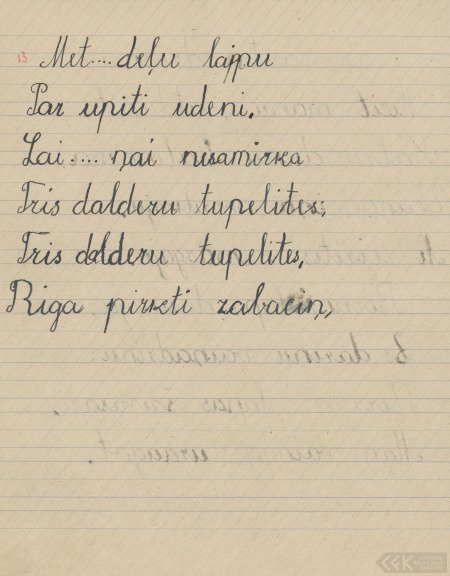 13 Met....deļu lajpu
Par upiti udeni.
Lai.... ņai nusamirka
Tris dalderu tupelites;
Tris dalderu tupelites,
Riga pirkti zabaciņ,